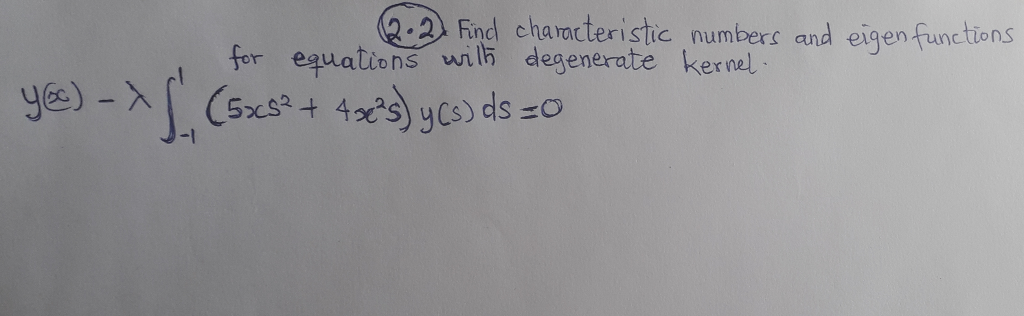 2.2 Find characteristic numbers and eigenfunctions
for equations with degenerate kernel.
y(x) - λ∫₋₁¹ (5xs² + 4x²s) y(s) ds = 0